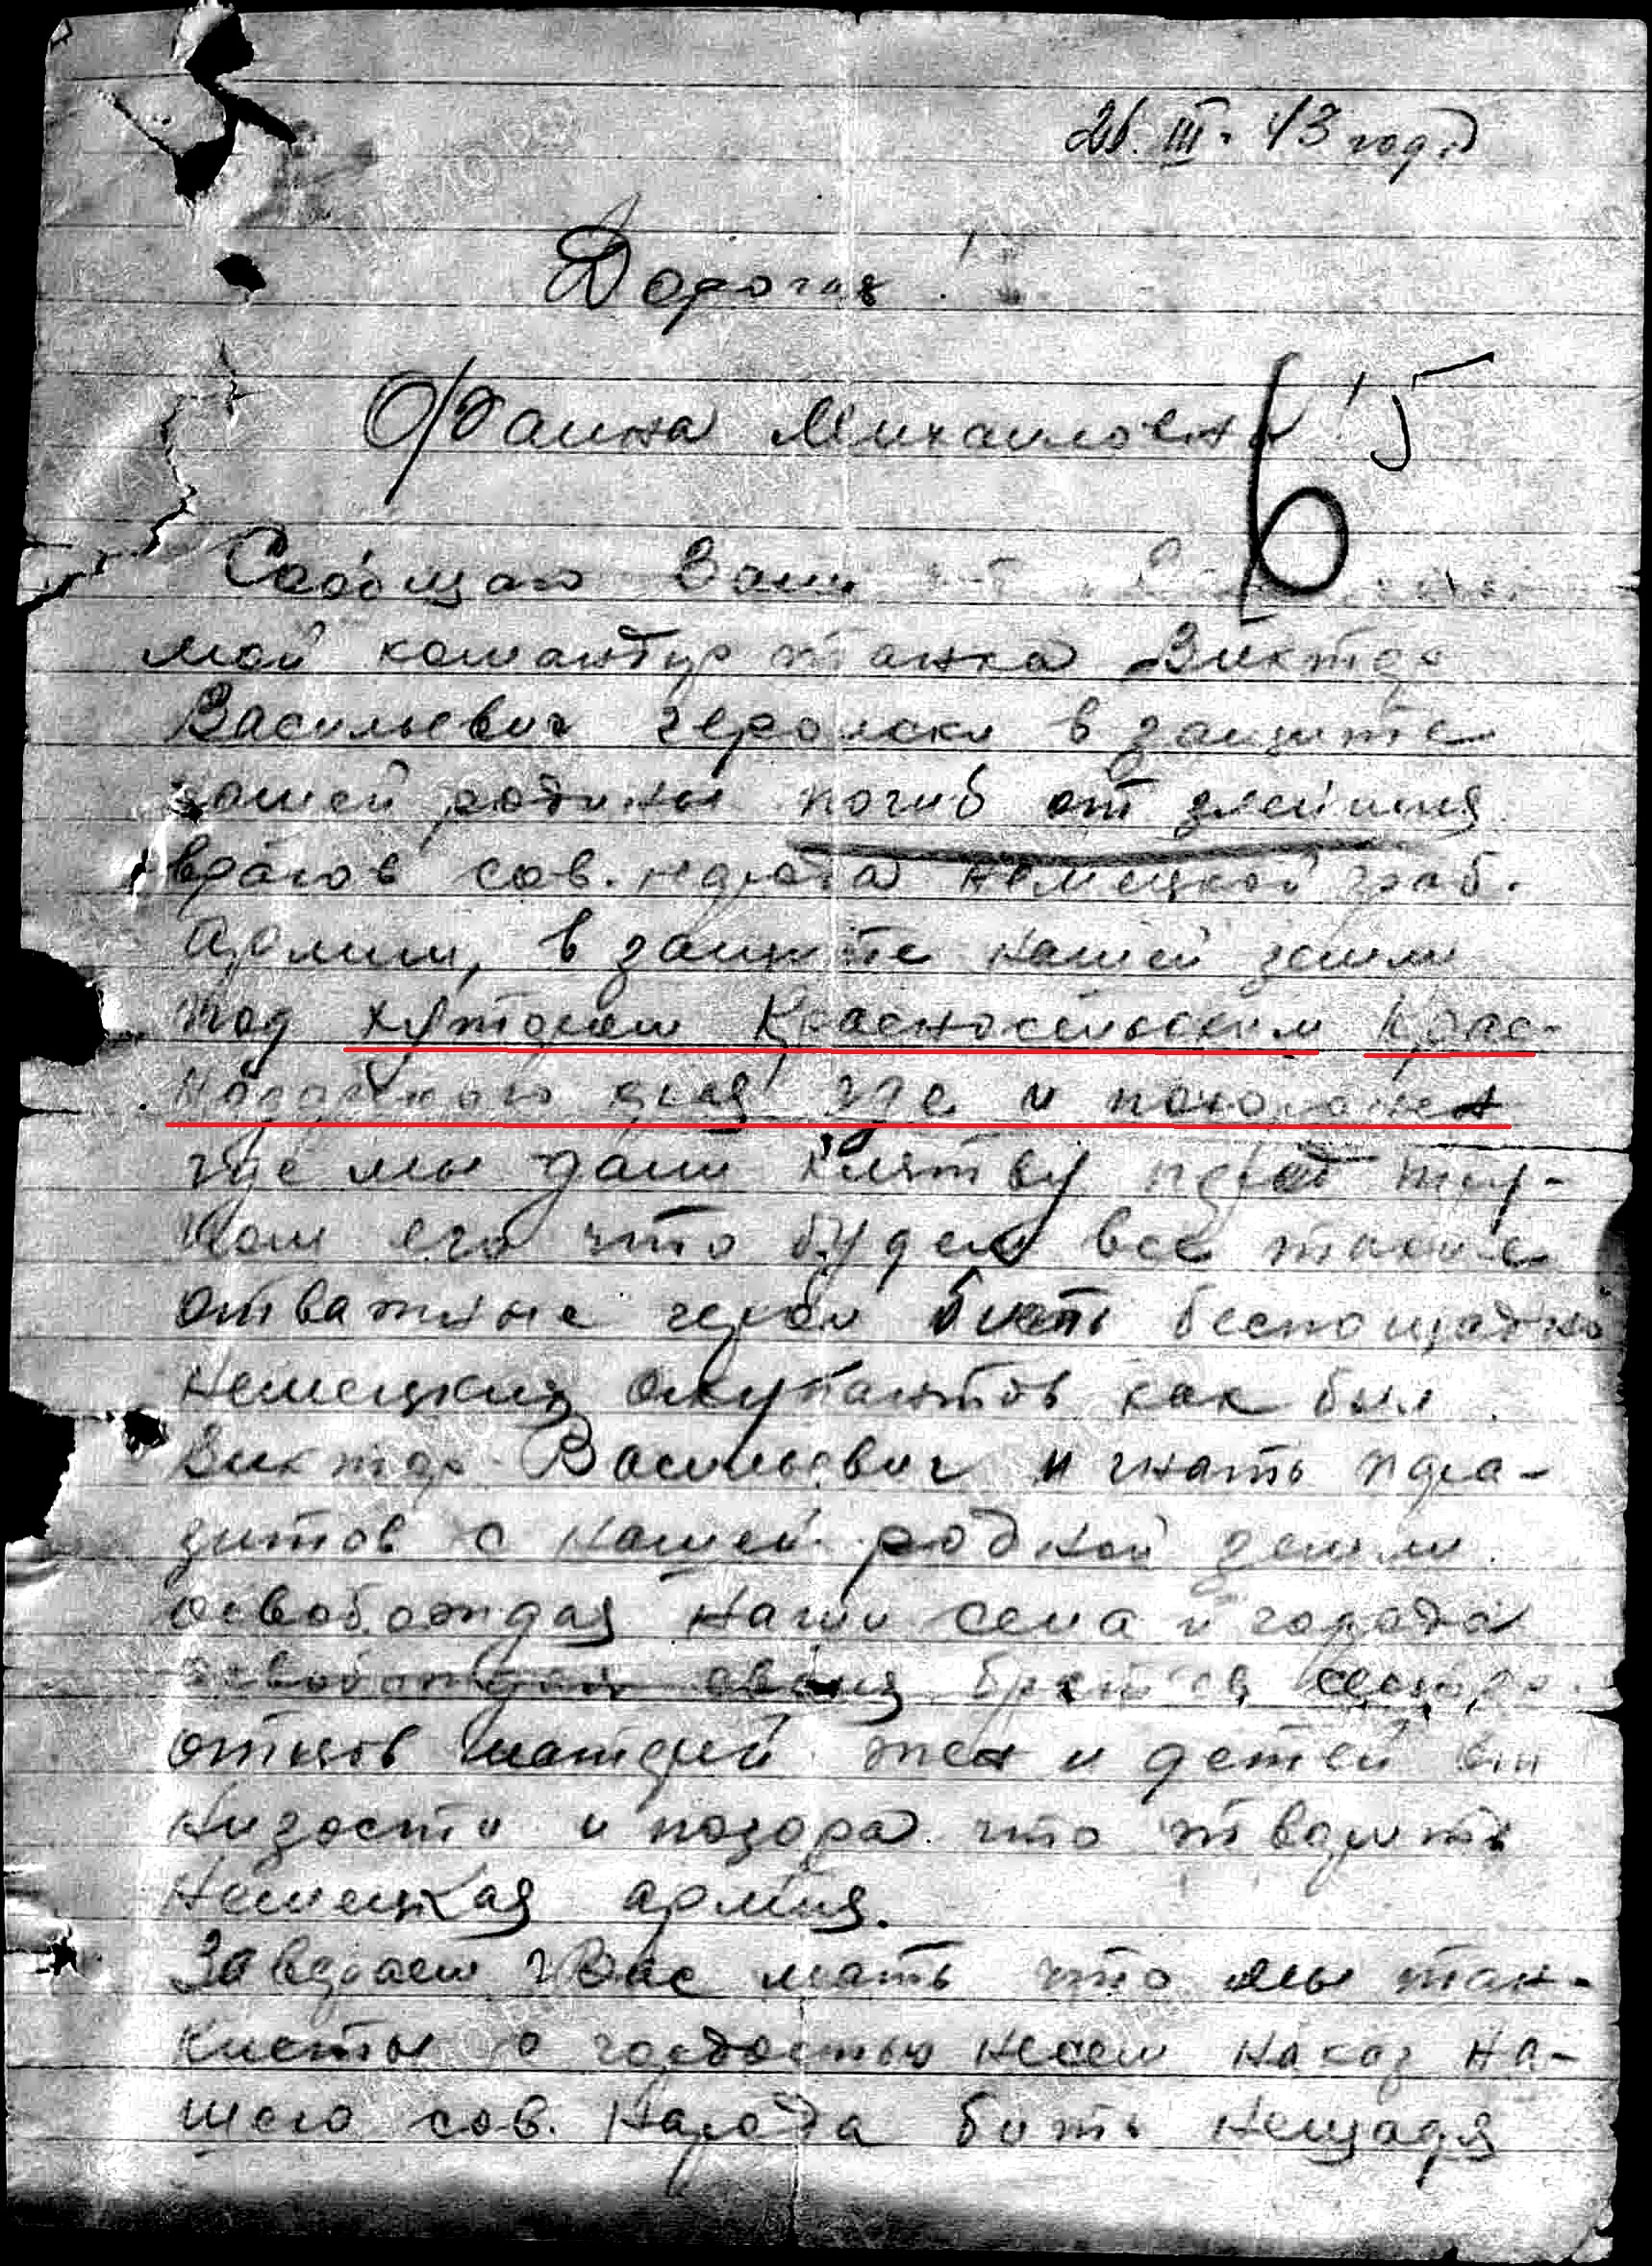 26. III. 43 года
Дорогая !
Фаина Михаиловна !
5
6
Сообщаю Вам
мой командир танка Виктор
Васильевич геройски в защите
нашей родины погиб от злейших
врагов сов. народа немецкой граб.
Армии, в защите нашей земли
под хутором Красносельским Крас-
нодарского края где и похоронен
где мы дали клятву перед тру-
пом его что будем все такие
отважные герои бить беспощадно
немецких окупантов как был
Виктор Васильевич и гнать пара-
зитов с нашей родной земли
освобождая наши села и города
освобождая своих братьев сестер
отцов матерей жен и детей от
низости и позора что творить
немецкая армия.
Заверяем Вас мать что мы тан-
кисты с гордостью несем наказ на-
шего сов. народа бить нещадя